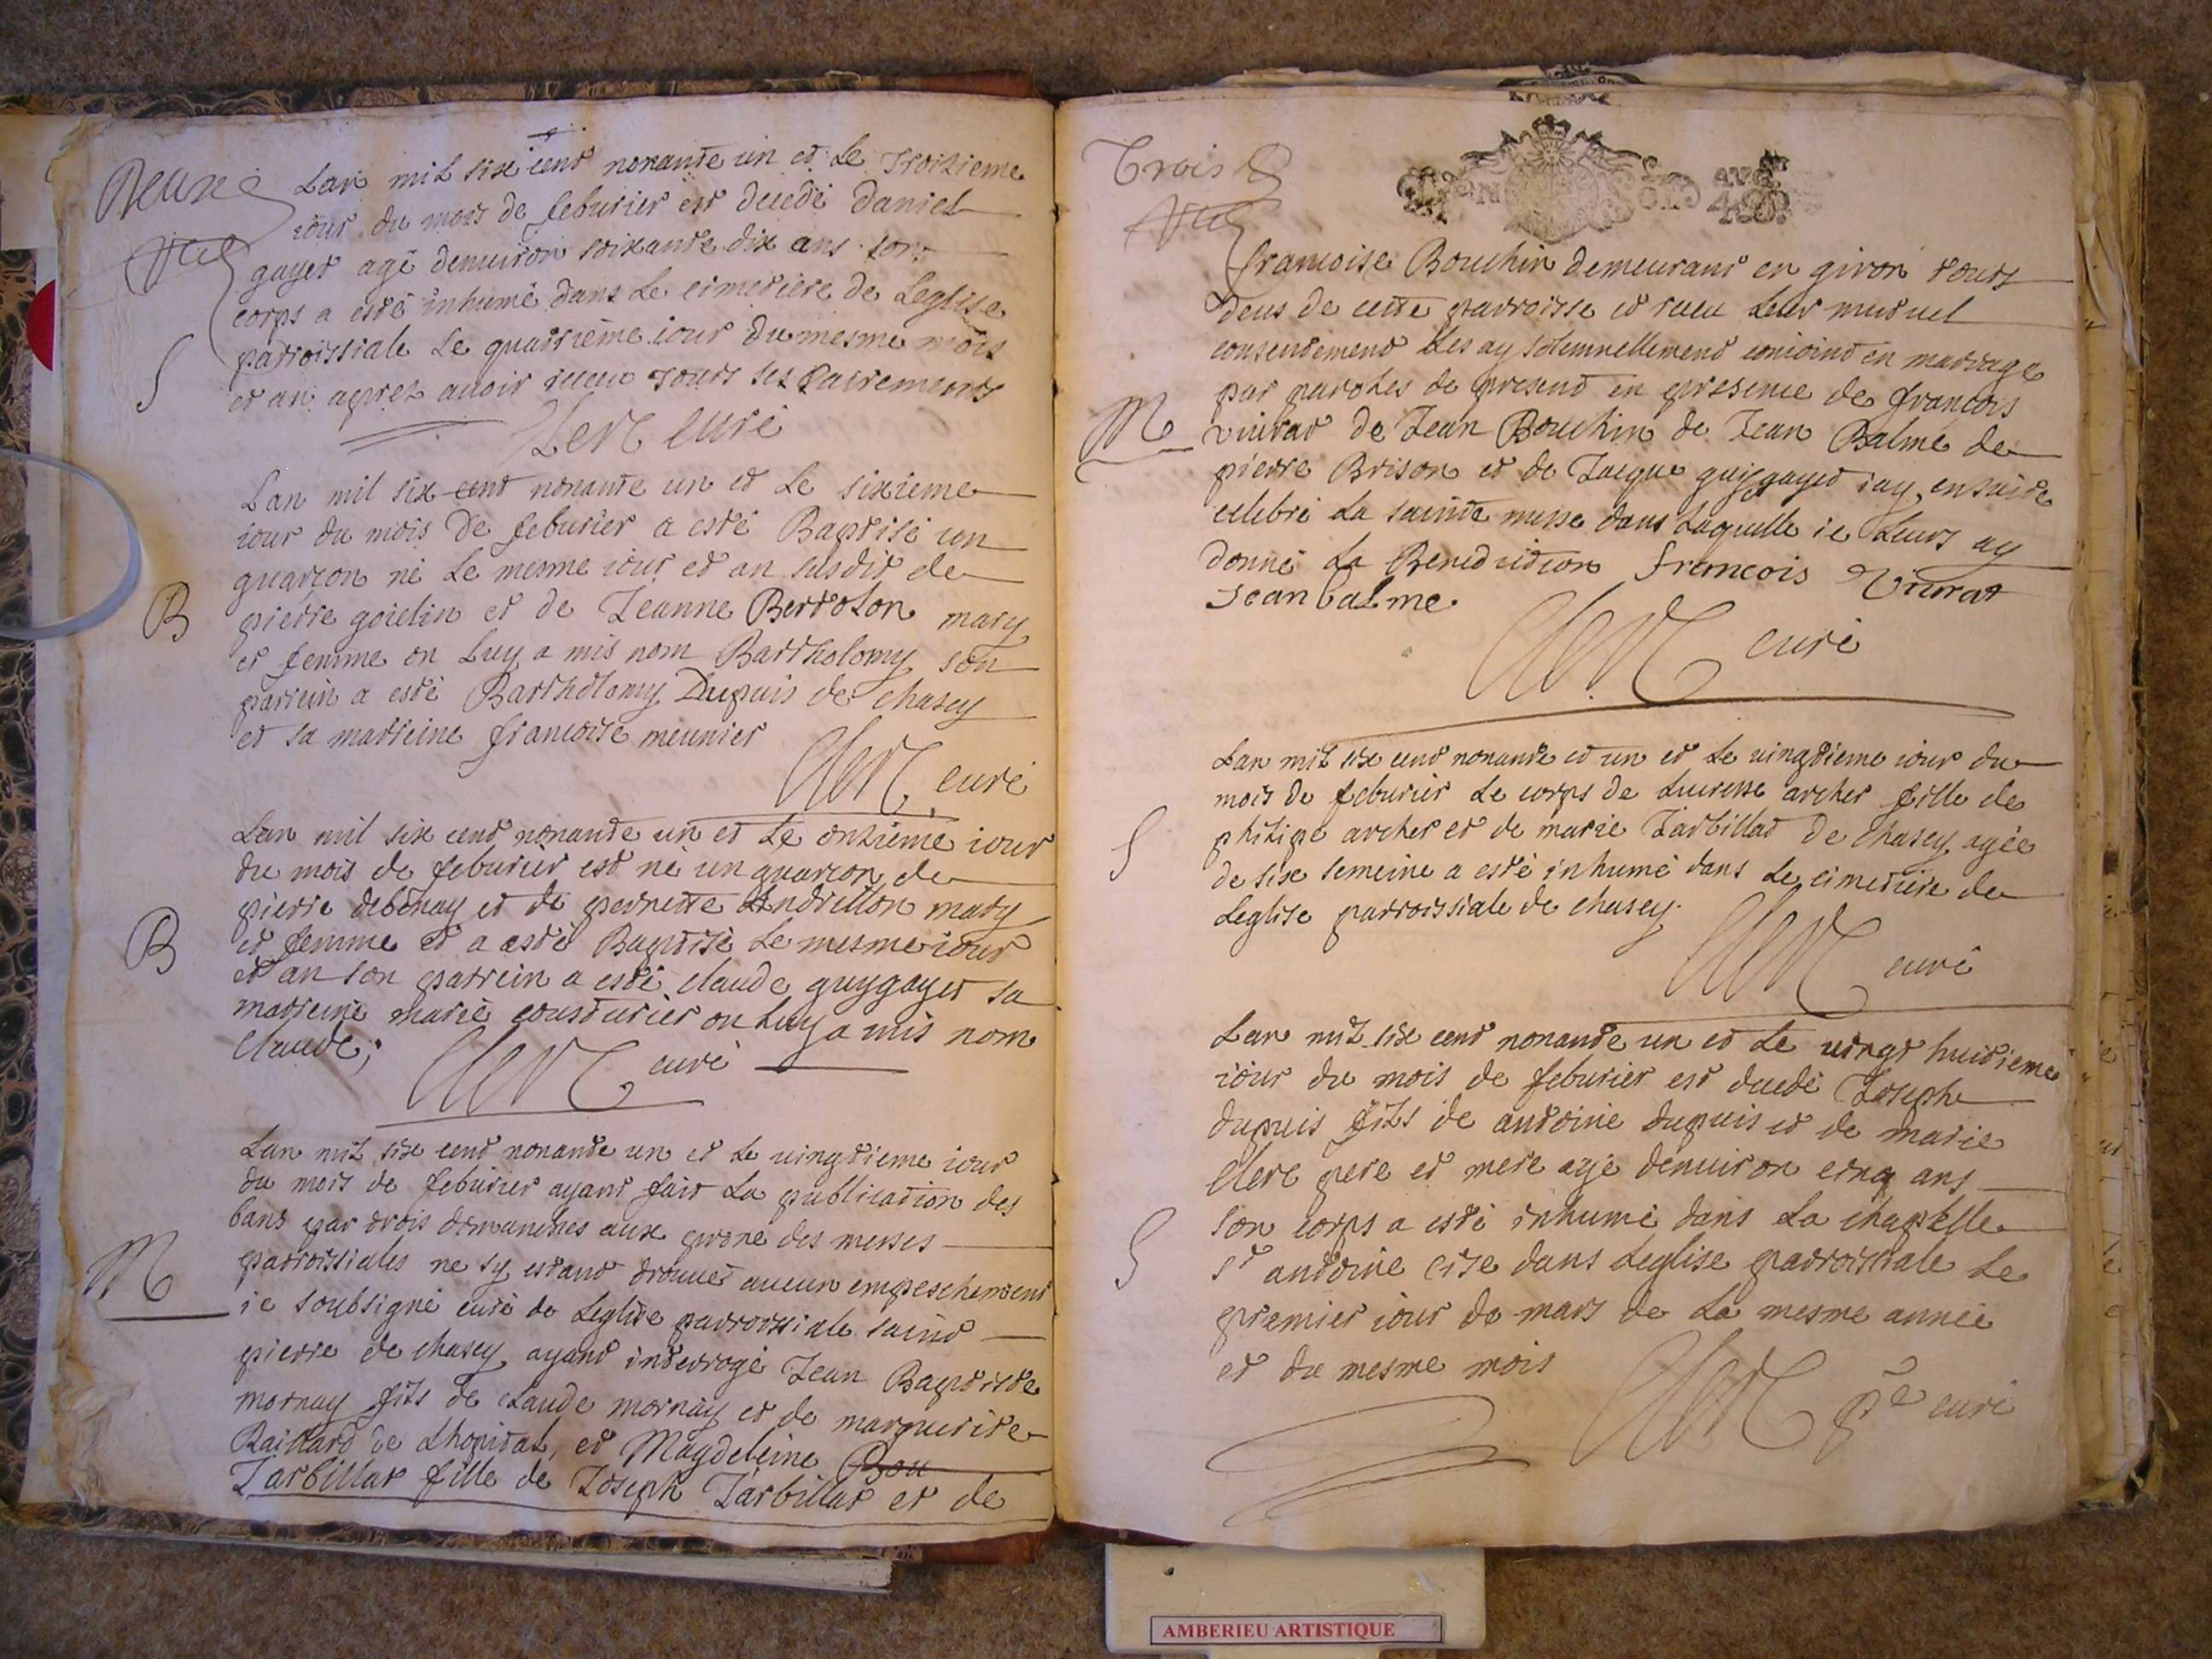 Lan mil six cent nonante un et Le Troisieme
iour du mois de feburier est decedé daniel
gayet agé denuiron soixante dix ans son
corps a esté inhumé dans Le cimetiere de Leglise
parroissiale Le quatrieme iour du mesme mois
et an aprez auoir receu touts ses sacrements
S
Clerc curé
Lan mil six cent nonante un et Le sixieme
iour du mois De feburier a esté Baptisé un
guarcon né Le mesme iour et an susdit de
B
pierre goietin et de Jeanne Bertolon mary
et femme on Luy a mis nom Bartholomy son
parrein a esté Bartholomy Dupuis de chasey
et sa marreine francoise meunier
Clerc curé
Lan mil six cent nonante un et Le onzieme iour
du mois de feburier est né un guarcon de
pierre debenay et de pernette Andrillon mary
B
et femme et a esté Baptisé Le mesme iour
et an son parrein a esté claude guygayet sa
marreine marie cousturier on Luy a mis nom
claude;
Clerc curé
Lan mil six cent nonante un et Le uingtieme iour
du mois de feburier ayant fait La publication des
bans par trois dimanches aux prone des messes
parroissiales ne sy estant trouué aucun empeschement
M
ie soubsigné curé de Leglise parroissiale saint
pierre de chasey ayant interrogé Jean Baptiste
mornay fils de claude mornay et de marguerite
Baillard de Lhopital, et Magdeleine Bou
Tarbillat fille de Joseph Tarbillat et de
Trois
AVG
francoise Bouchin demeurant en giron touts
deus de cette parroisse et receu Leur mutuel
consentement Les ay solemnellement conioint en mariage
par paroles de present en presence de francois
M
uiurat de Jean Bouchin de Jean Balme de
pierre Brison et de Jacque guygayet iay ensuite
celebré La sainte messe dans Laquelle ie Leurs ay
donné La Benediction francois Viurat
Jean balme
Clerc curé
Lan mil six cent nonante et un et Le uingtieme iour du
mois de feburier Le corps de Lucresse archer fille de
philipe archer et de marie Tarbillat de chasey agée
S
de six semeine a esté inhumé dans Le cimetiere de
Leglise parroissiale de chasey.
Clerc curé
Lan mil six cent nonante un et Le uingt huitieme
iour du mois de feburier est decedé Joseph
dupuis fils de antoine dupuis et de marie
Clerc pere et mere agé denuiron cinq ans
son corps a esté inhumé dans La chapelle
S
st antoine cise dans Leglise parroissiale Le
premier iour de mars de La mesme année
et du mesme mois
Clerc pre curé
AMBERIEU ARTISTIQUE